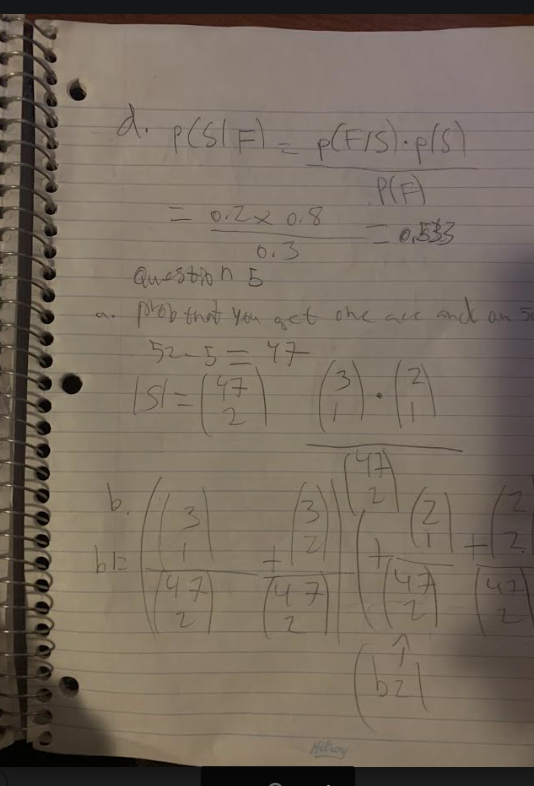 d. P(S|F) = P(F/S)·P(S)
P(F)
= 0.2 x 0.8 = 0.533
0.3
Question 5
a. prob that you get one ace and an
52-5 = 47
|S| = (47 2) (3 1) · (2 1)
(47 2)
b. (3 1) + (3 2) + (2 1) + (2 2)
b1= (47 2) (47 2) (47 2) (47 2)
↑
(b2)
Hilroy